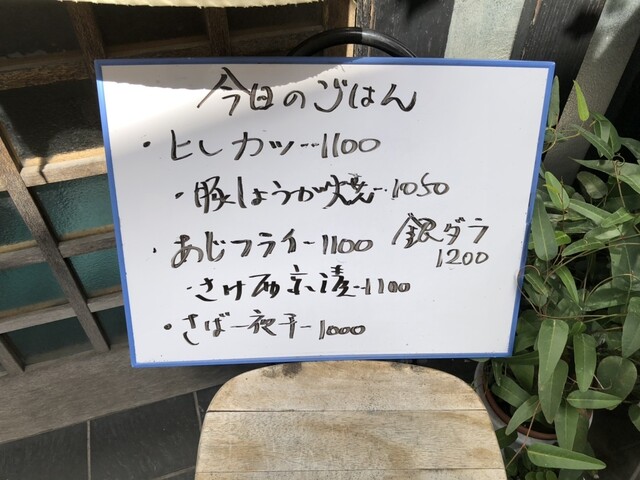 今日のごはん
・ヒレカツ…1100
・豚しょうが焼…1050
・あじフライ…1100
銀ダラ
1200
・さけ西京漬…1100
・さば一夜干…1000